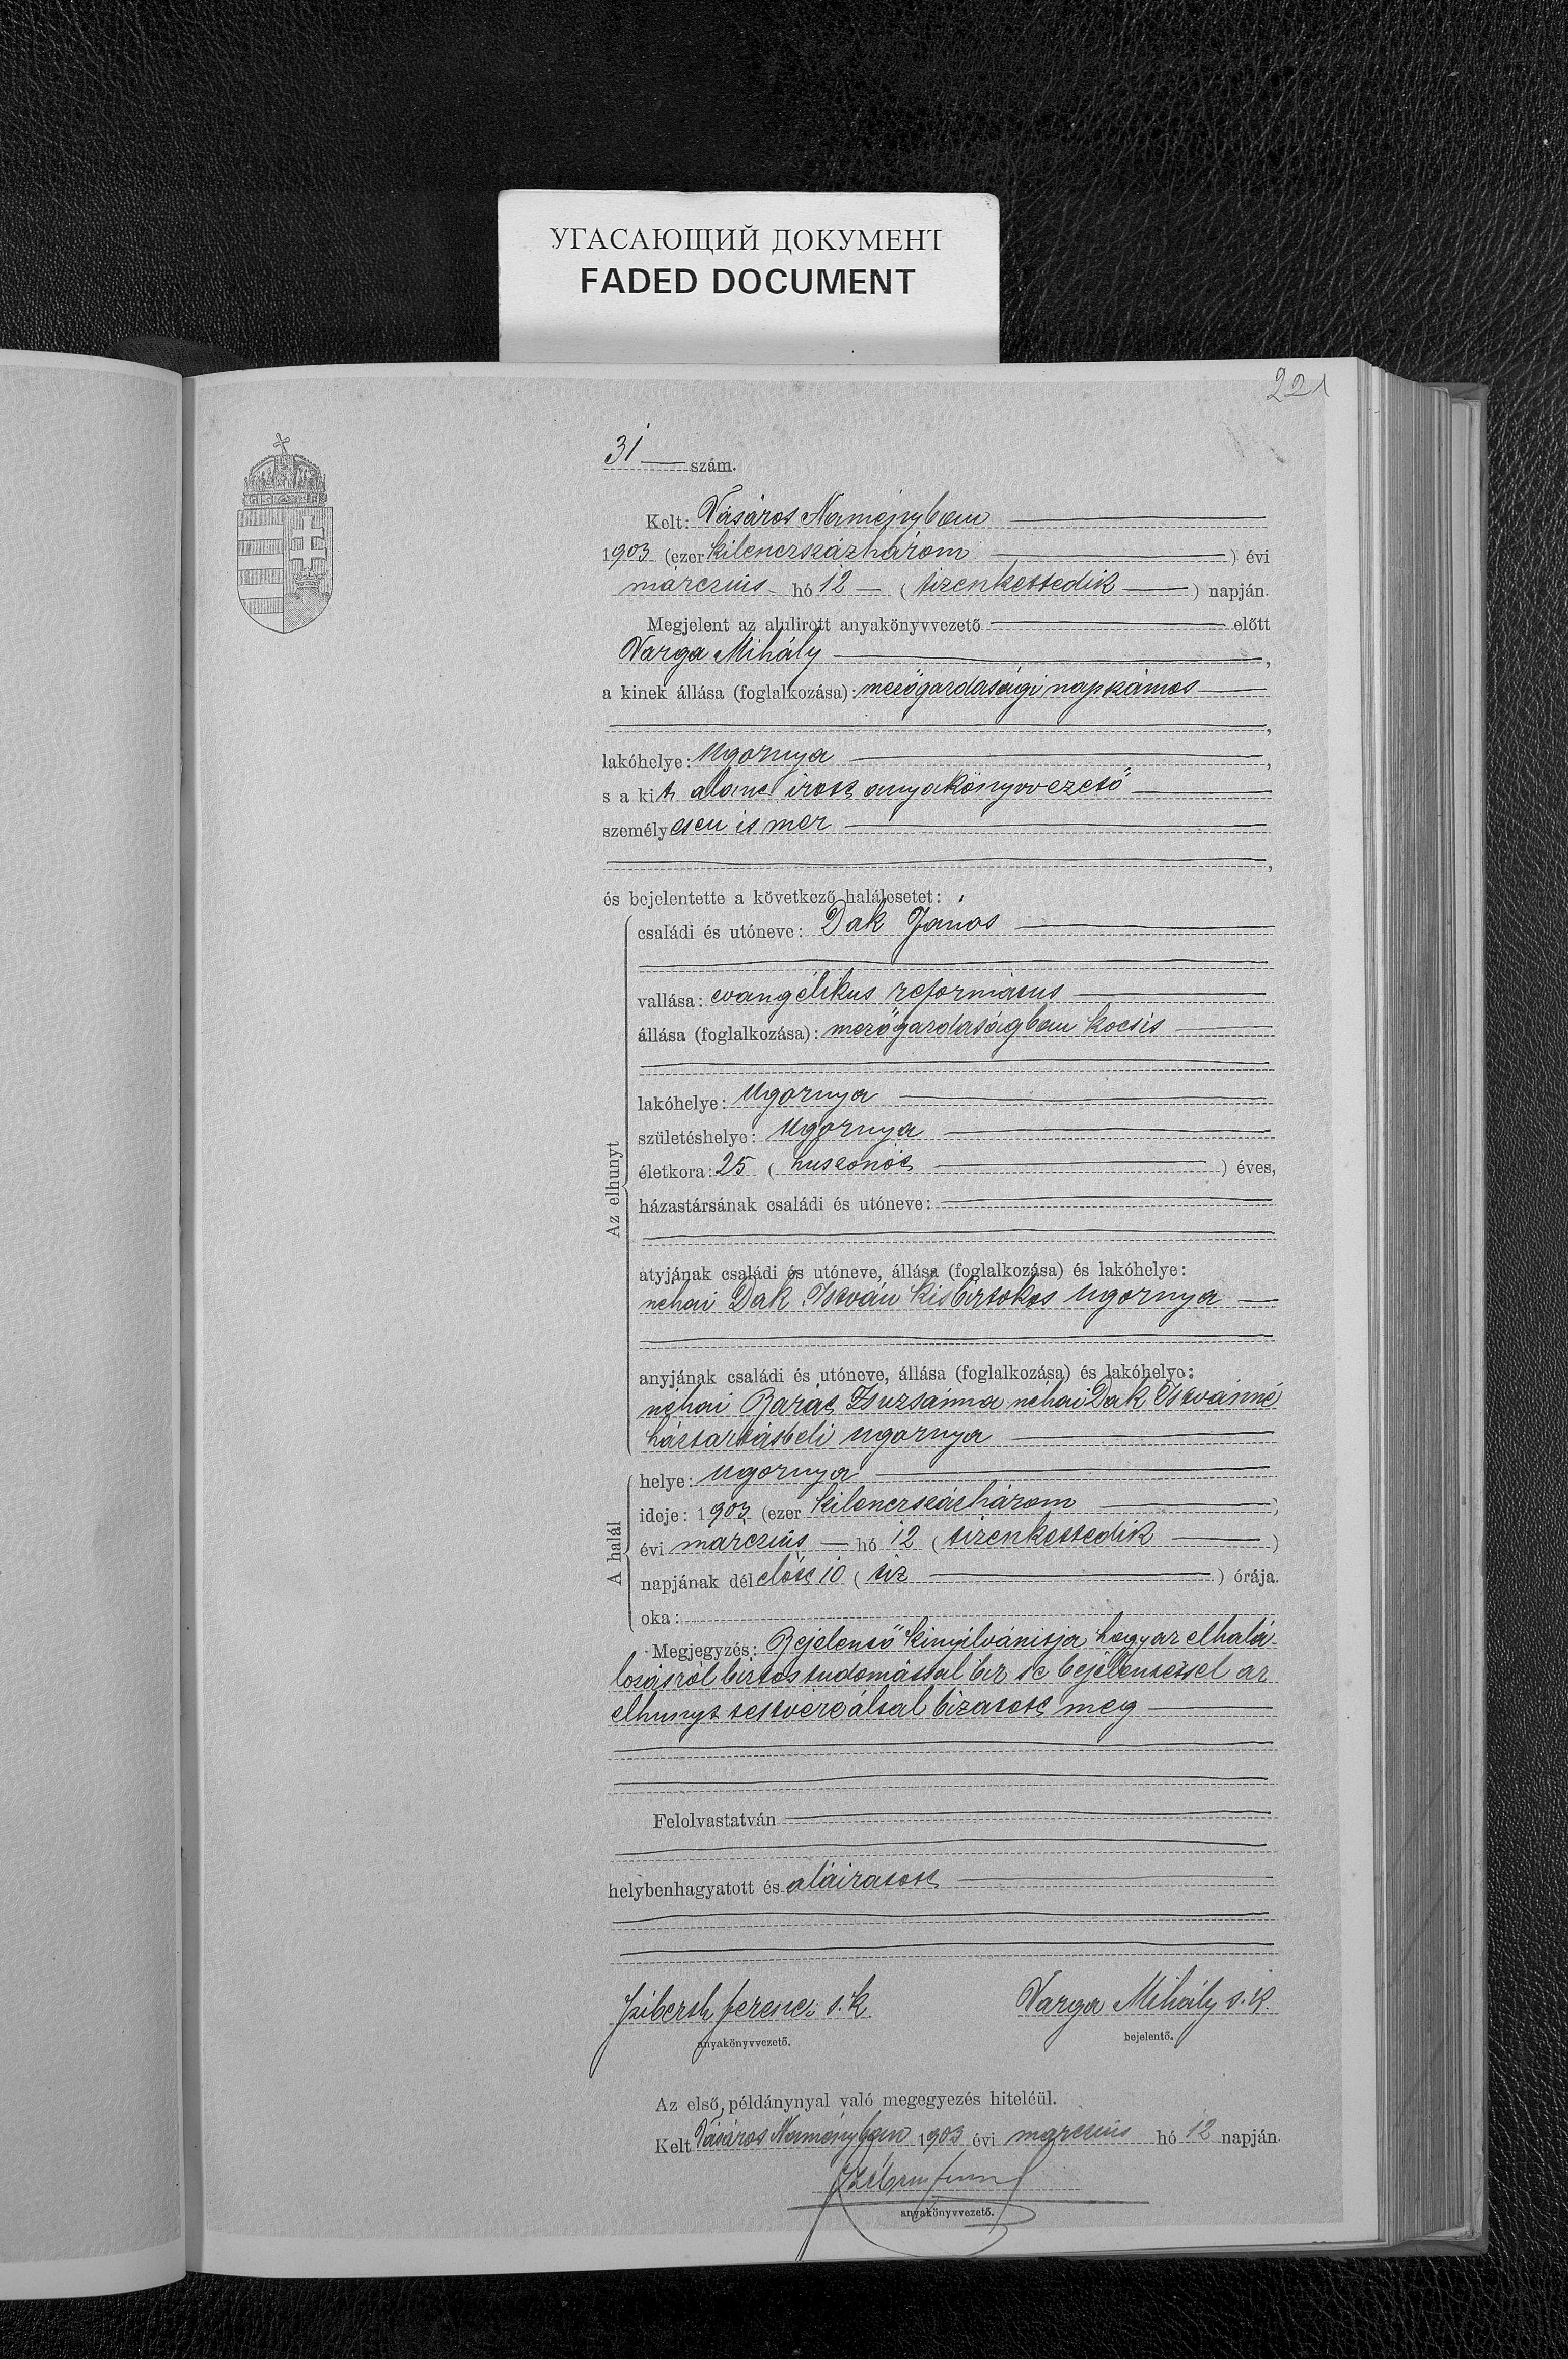 УГАСАЮЩИЙ ДОКУМЕНТ
FADED DOCUMENT
221
31 szám.
Kelt: Vásáros Naményban
1903 (ezer kilenczszázhárom ) évi
márczius hó 12 ( tizenkettedik ) napján.
Megjelent az alulirott anyakönyvvezető előtt
Varga Mihály ,
a kinek állása (foglalkozása): mezőgazdasági napszámos
,
lakóhelye: Ugornya ,
s a kit alant irott anyakönyvvezető
személyesen ismer
,
és bejelentette a következő halálesetet:
Az elhunyt
családi és utóneve: Dak János
vallása: evangélikus református
állása (foglalkozása): mezőgazdaságban kocsis
lakóhelye: Ugornya
születéshelye: Ugornya
életkora: 25 ( huszonöt ) éves,
házastársának családi és utóneve:
atyjának családi és utóneve, állása (foglalkozása) és lakóhelye:
néhai Dak István kisbirtokos Ugornya
anyjának családi és utóneve, állása (foglalkozása) és lakóhelye:
néhai Barát Zsuzsánna néhai Dak Istvánné
háztartásbeli Ugornya
A halál
helye: Ugornya
ideje: 1903 (ezer kilenczszázhárom )
évi márczius hó 12 ( tizenkettedik )
napjának délelőtt 10 ( tiz ) órája.
oka:
Megjegyzés: Bejelentő kinyilvánitja hogy az elhalá-
lozásról biztos tudomással bir s e bejelentéssel az
elhunyt testvére által bizatott meg
Felolvastatván
helybenhagyatott és aláiratott
ferencz s. k. Varga Mihály s. k.
anyakönyvvezető. bejelentő.
Az első példánynyal való megegyezés hiteléül.
Kelt Vásáros Naményban 1903 évi márczius hó 12 napján.
anyakönyvvezető.